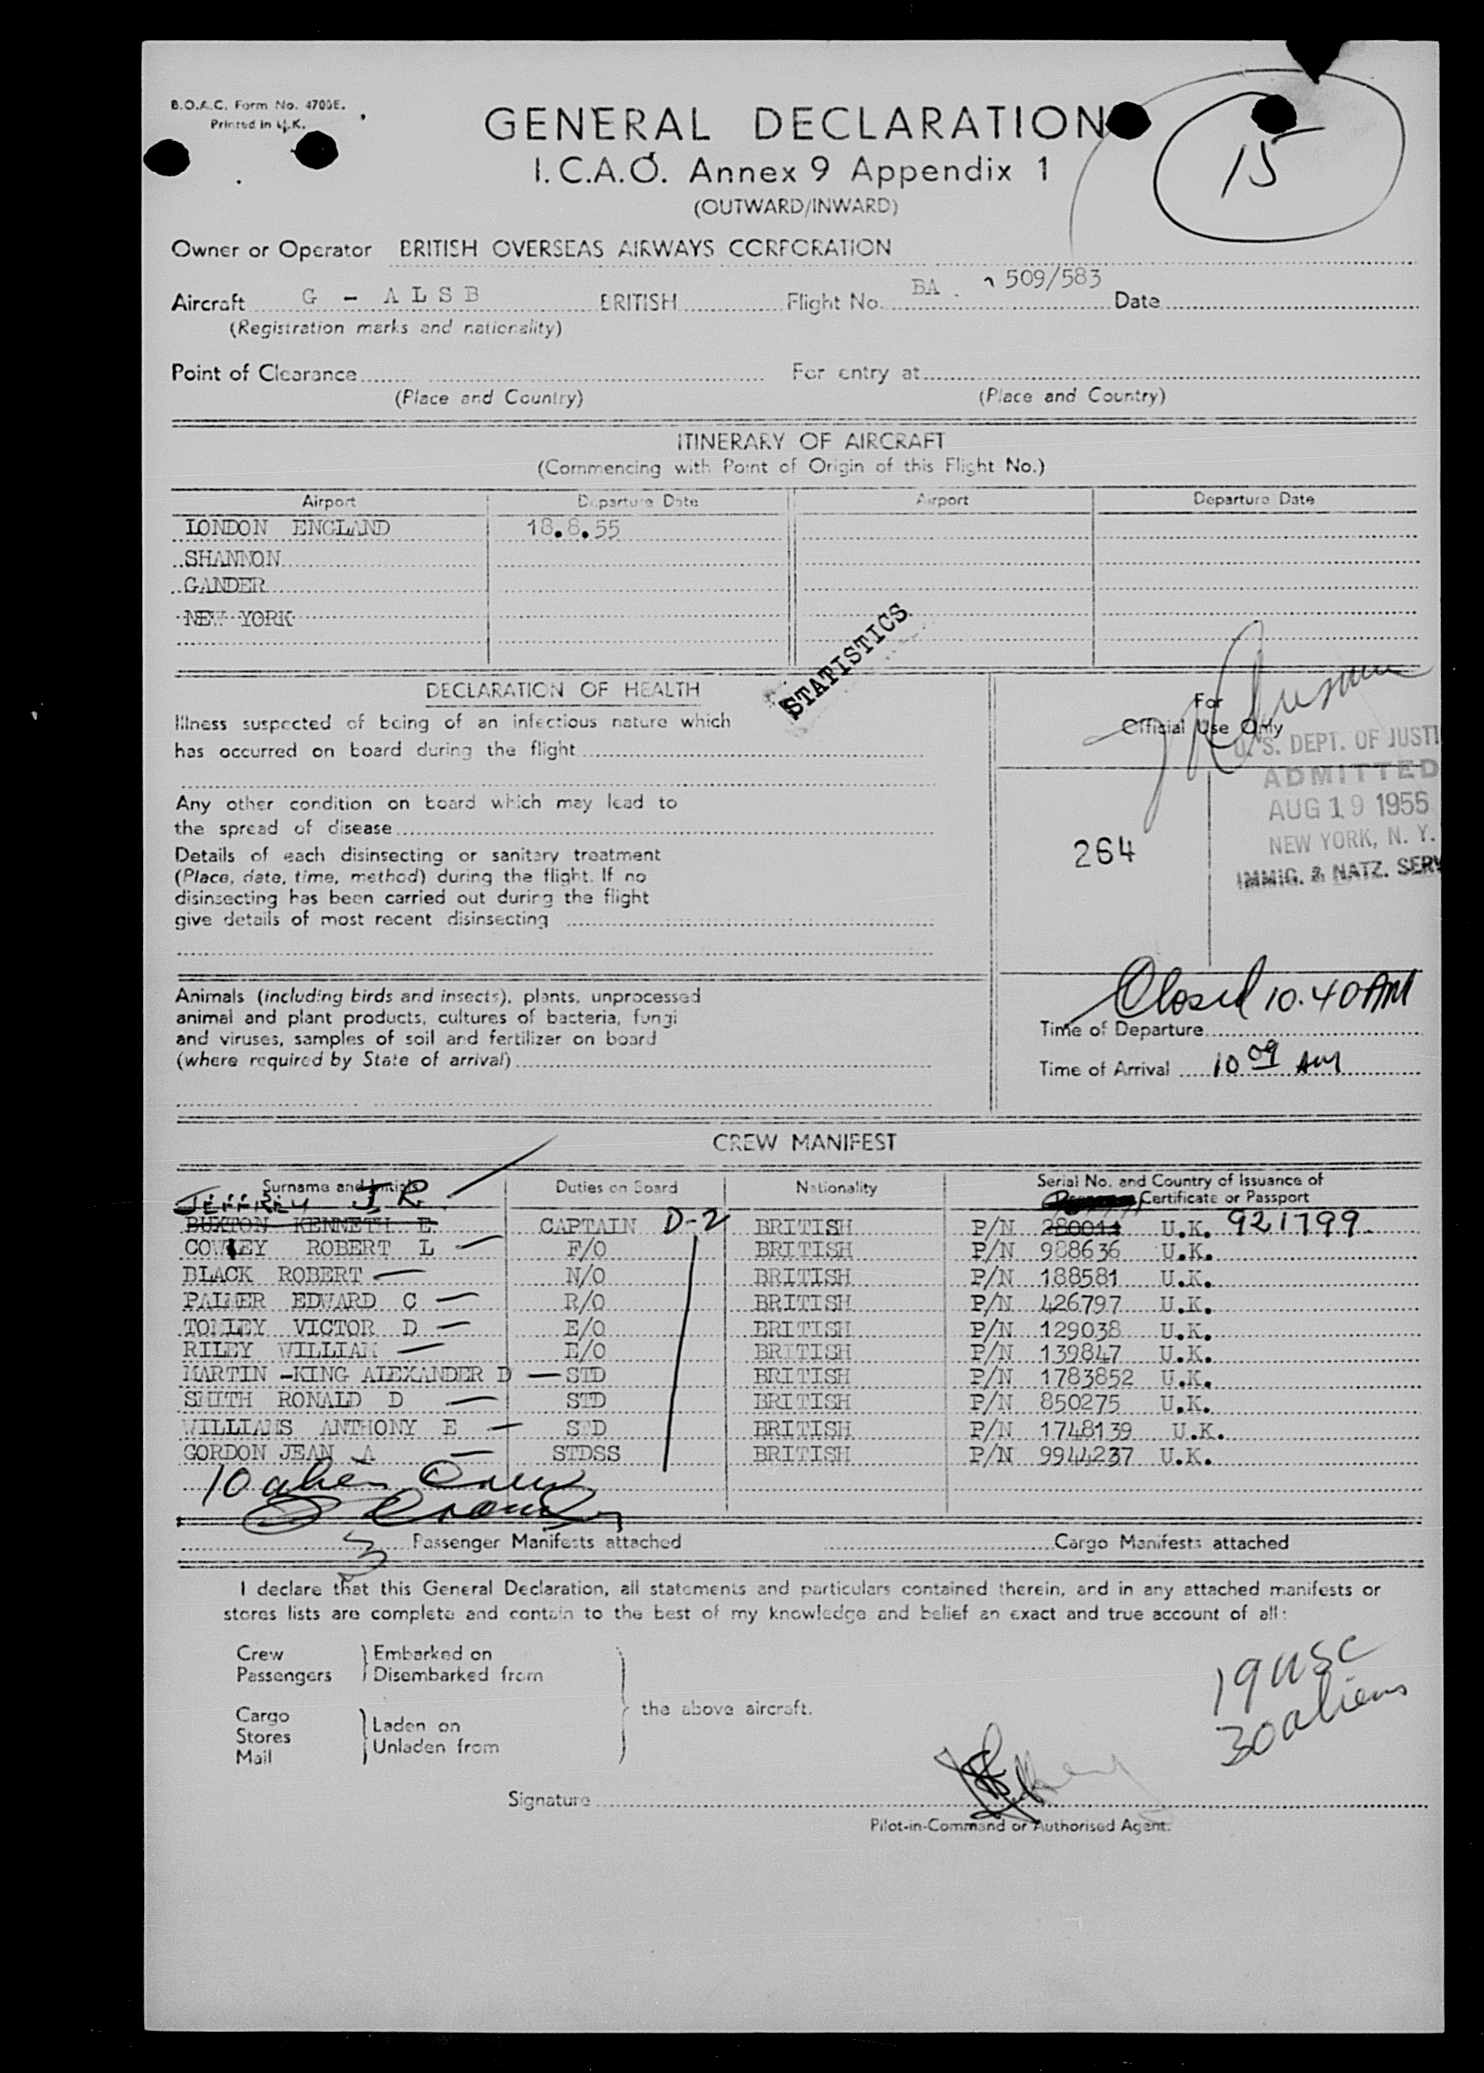 B.O.A.C. Form No. 4705E.
Printed in U.K.
GENERAL DECLARATION
15
I.C.A.O. Annex 9 Appendix 1
(OUTWARD/INWARD)
Owner or Operator BRITISH OVERSEAS AIRWAYS CORPORATION
Aircraft G - ALSB BRITISH Flight No. BA. 509/583 Date
(Registration marks and nationality)
Point of Clearance For entry at
(Place and Country) (Place and Country)
ITINERARY OF AIRCRAFT
(Commencing with Point of Origin of this Flight No.)
Airport Departure Date Airport Departure Date
LONDON ENGLAND 18.8.55
SHANNON
GANDER
NEW YORK
STATISTICS
DECLARATION OF HEALTH
Illness suspected of being of an infectious nature which
has occurred on board during the flight
Any other condition on board which may lead to
the spread of disease
Details of each disinsecting or sanitary treatment
(Place, date, time, method) during the flight. If no
disinsecting has been carried out during the flight
give details of most recent disinsecting
For
Official Use Only
U.S. DEPT. OF JUSTI
ADMITTED
AUG 19 1955
NEW YORK, N. Y.
IMMIG. & NATZ. SERV
264
Animals (including birds and insects), plants, unprocessed
animal and plant products, cultures of bacteria, fungi
and viruses, samples of soil and fertilizer on board
(where required by State of arrival)
Closed 10.40 AM
Time of Departure
Time of Arrival 10 09 AM
CREW MANIFEST
Surname and Initials Duties on Board Nationality Serial No. and Country of Issuance of
Certificate or Passport
JEFFREY J R.
BUXTON KENNETH E CAPTAIN D-2 BRITISH P/N 280011 U.K. 921799
COWLEY ROBERT L F/O BRITISH P/N 988636 U.K.
BLACK ROBERT N/O BRITISH P/N 188581 U.K.
PALMER EDWARD C R/O BRITISH P/N 426797 U.K.
TOMLEY VICTOR D E/O BRITISH P/N 129038 U.K.
RILEY WILLIAM E/O BRITISH P/N 139847 U.K.
MARTIN -KING ALEXANDER D STD BRITISH P/N 1783852 U.K.
SMITH RONALD D STD BRITISH P/N 850275 U.K.
WILLIAMS ANTHONY E STD BRITISH P/N 1748139 U.K.
GORDON JEAN A STDSS BRITISH P/N 9944237 U.K.
10 alien Crew
3 Passenger Manifests attached Cargo Manifests attached
I declare that this General Declaration, all statements and particulars contained therein, and in any attached manifests or
stores lists are complete and contain to the best of my knowledge and belief an exact and true account of all:
Crew Embarked on
Passengers Disembarked from
the above aircraft.
Cargo
Stores Laden on
Mail Unladen from
19 USC
30 aliens
Signature
Pilot-in-Command or Authorised Agent.